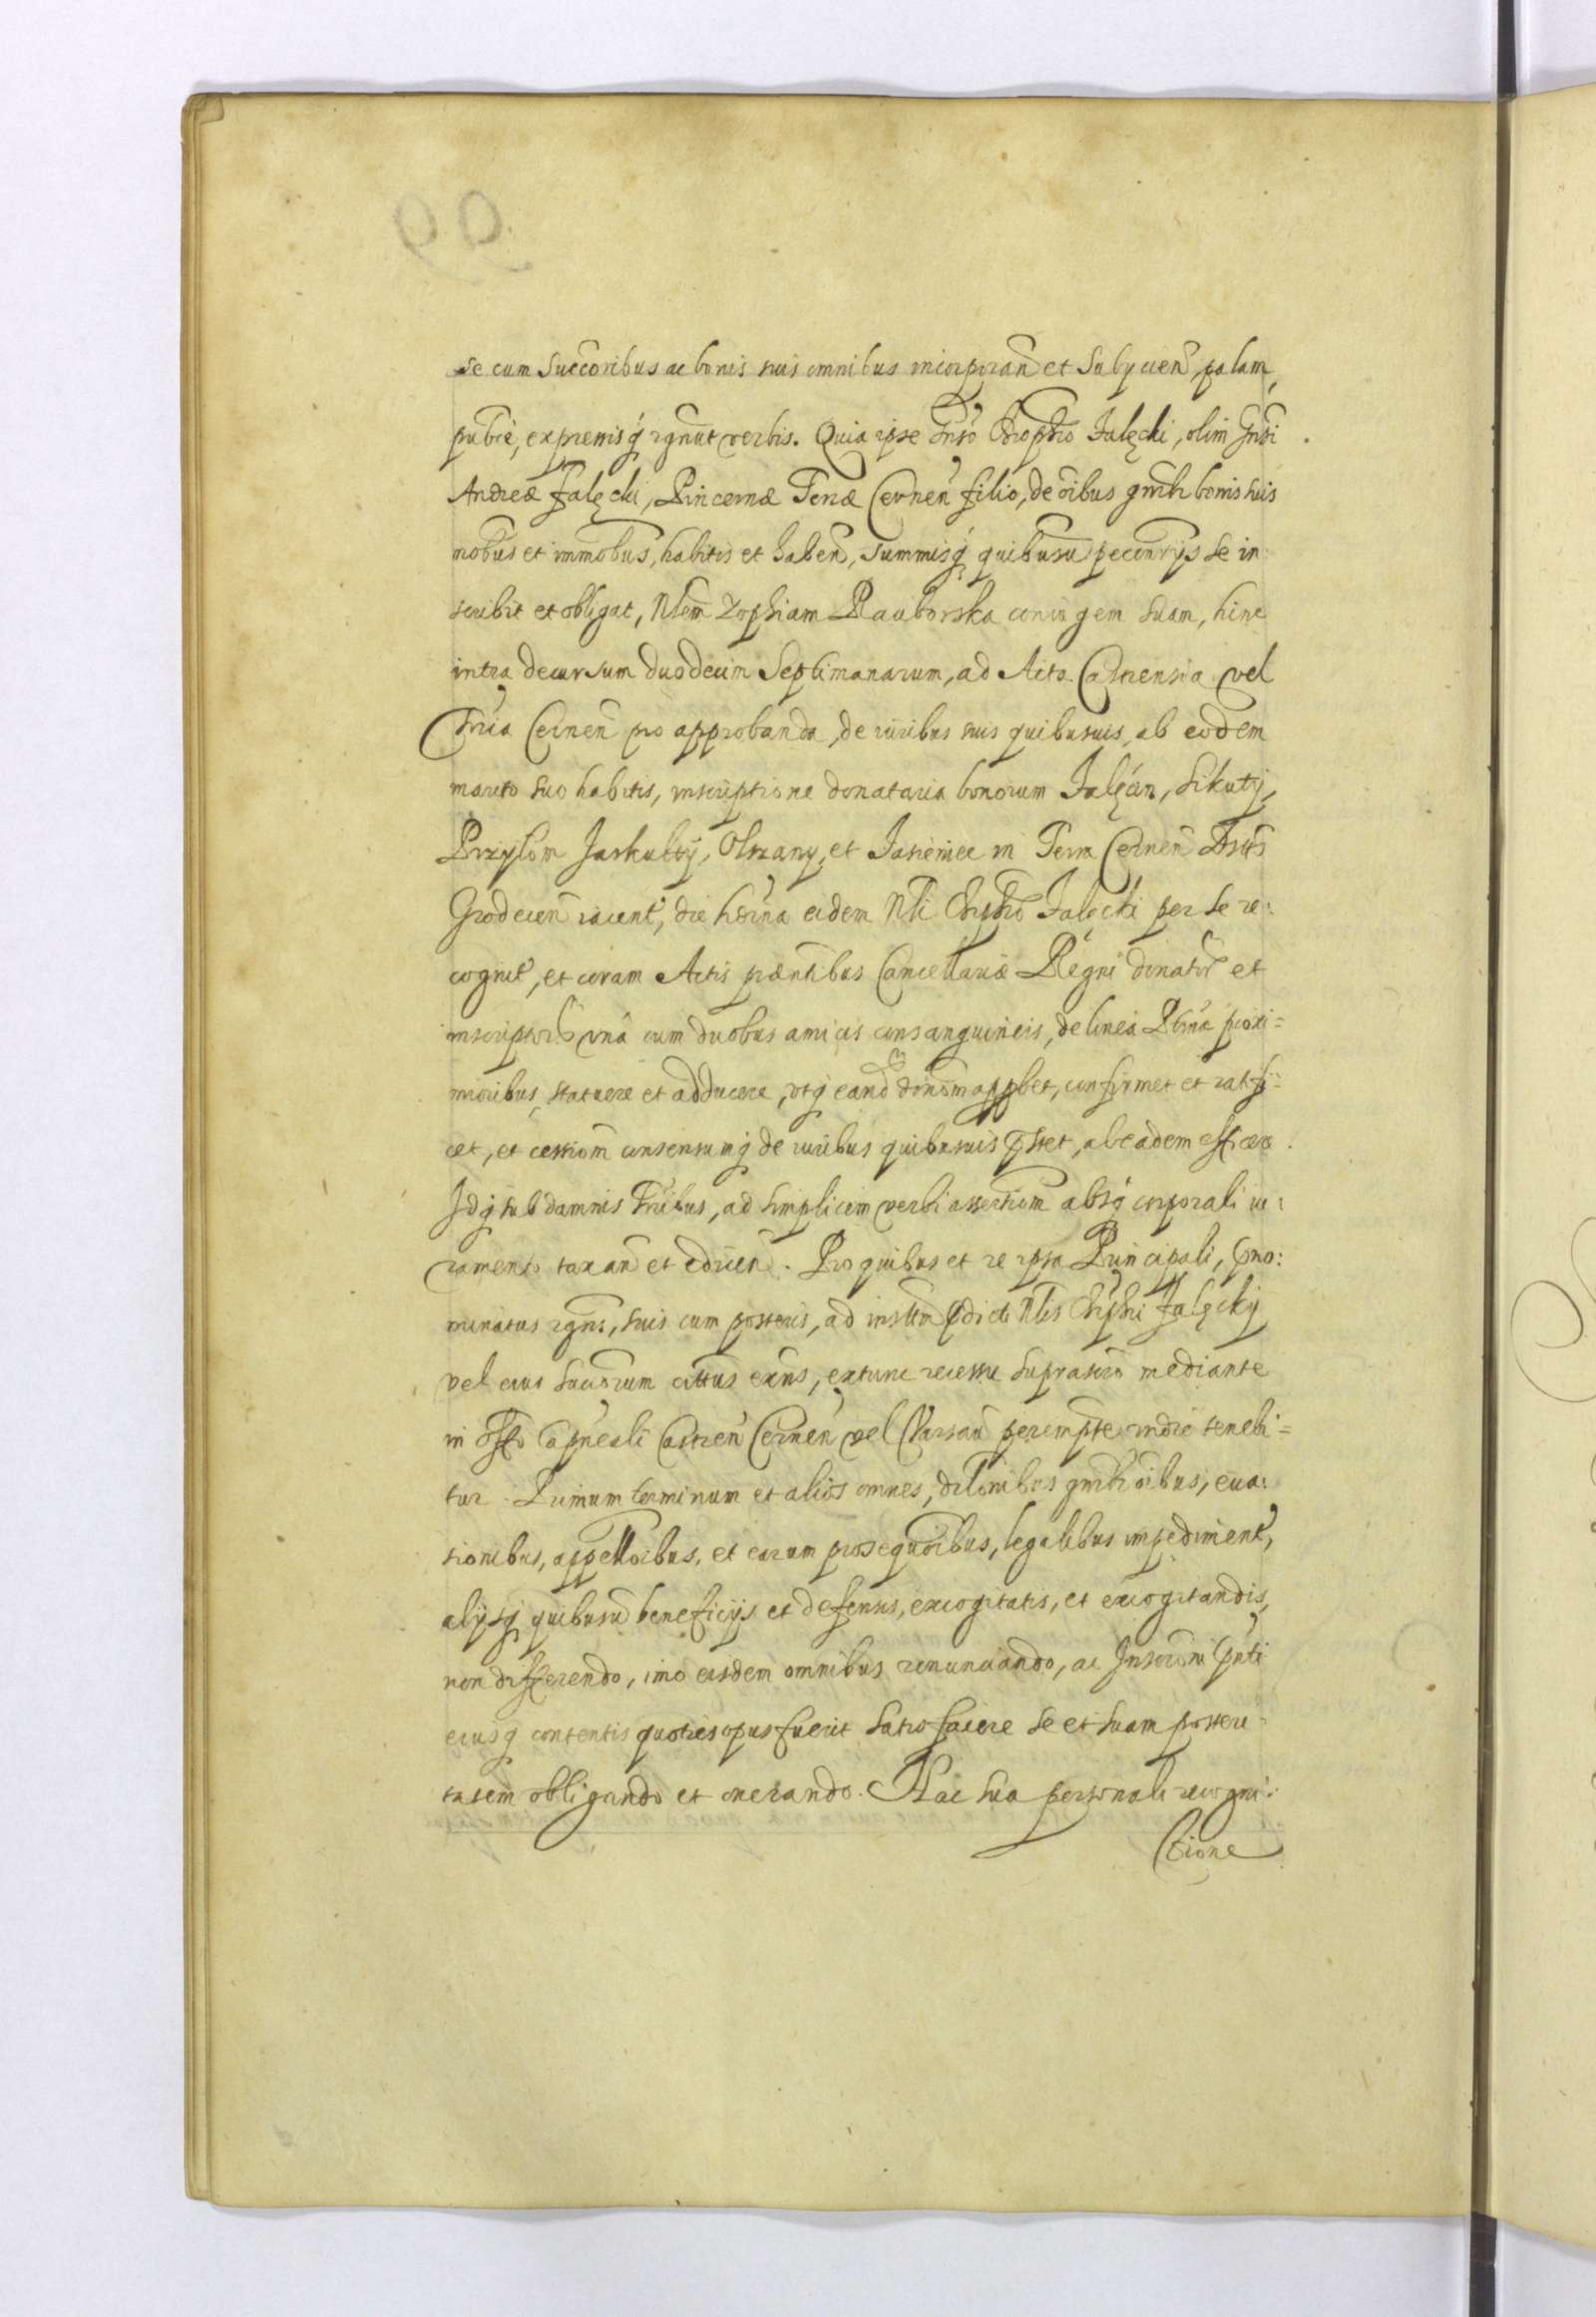 se cum Succoribus ac bonis suis omnibus incorporan et Subycien, palam,
publce, expressisq́ rgnut verbis. Quia ipse Gnso Chrophro Falęcki, olim Gnsi
Andreæ Falęcki, Pincernæ Terræ Cernen filio, de oibus gnrlr bonis suis
mobus et immobus, habitis et haben, summisq́ quibusvi pecunrys se in
scribit et obligat, Nlem Zophiam Rauborska coniugem suam, hinc
intra decursum duodecim Septimanarum, ad Acta Castrensia vel
Trria Cernen pro approbanda, de iuribus suis quibusvis, ab eodem
marito suo habitis, inscriptione donataria bonorum Falęcin, Sikuty,
Przylom Jaskulty, Olszany, et Jasieniec in Terra Cernen
Grodecen iacent, die hdierna eidem Nli Chrphro Falęcki per se re:
cognit, et coram Actis præntibus Cancellariæ Regni donatr et
inscriptor una cum duobus amicis consanguineis, de linea Ptrna proxi=
mioribus, statuere et adducere, utq eand donom appbet, confirmet et ratifi=
cet, et cessiom consensumq́ de iuribus quibusvis pstet, ab eadem efficere.
Idq́ sub damnis Trribus, ad simplicem verbi assertiom absq́ corporali iu:
ramento taxan et edicen. Pro quibus et re ipsa Principali, pno:
minatus rgns, suis cum posteris, ad insttm pdicti Nlis Chrphri Falęcky
vel eius Succorum cittus exns, extunc recessu suprascro mediante
in offo Capneali Castren Cernen vel Varsau perempte rndre tenebi=
tur. Primum terminum et alios omnes, diltonibus gnrlr oibus, eua:
sionibus, appelloibus, et earum prosequoibus, legalibus impediment,
alysq́ quibusu beneficys et defensis, excogitatis, et excogitandis,
non differendo, imo eisdem omnibus renunciando, ac Inscroni pnti
eiusq contentis quoties opus fuerit satisfacere se et suam posteri=
tatem obligando et onerando. Hac sua personali recogni:
tione